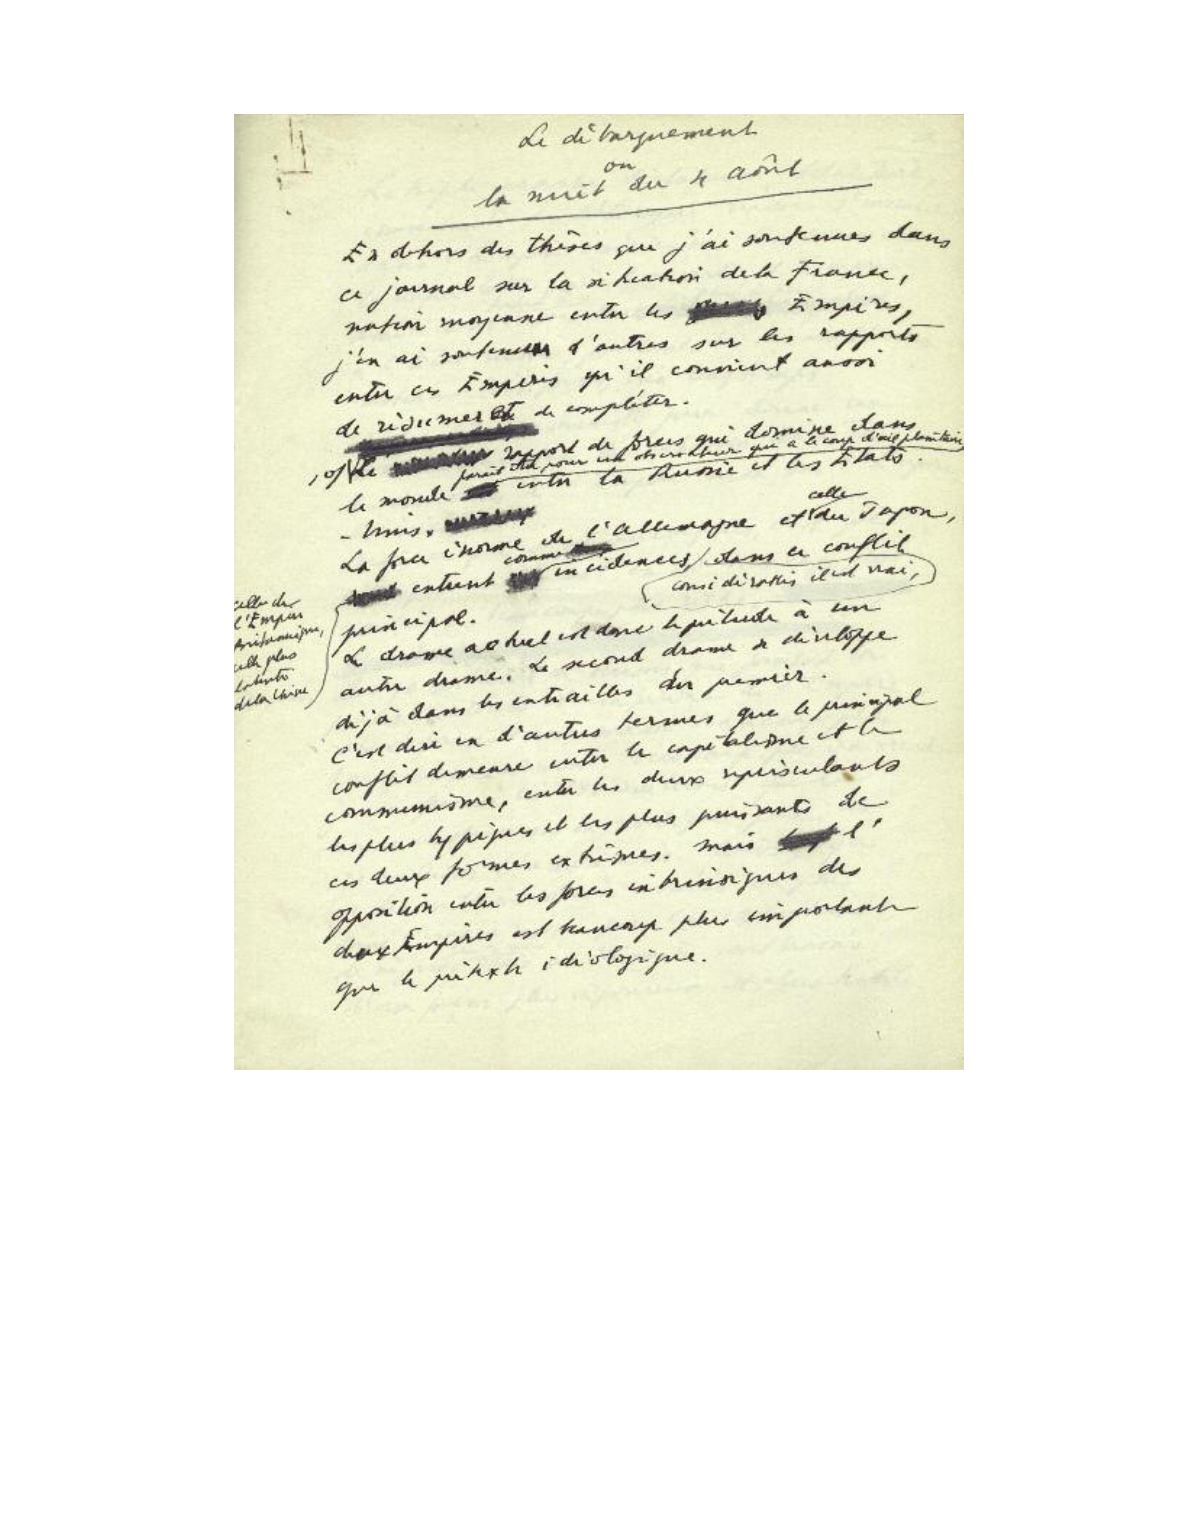 Le débarquement
ou
la nuit du 4 août
En dehors des thèses que j'ai soutenues dans
ce journal sur la situation de la France,
nation moyenne entre les Empires,
j'en ai soutenu d'autres sur les rapports
entre ces Empires qu'il convient aussi
de résumer et de compléter.
, of Le rapport de forces qui domine dans
paraît être pour un observateur qui a le coup d'œil planétaire
le monde entre la Russie et les États
- Unis.
celle
La force énorme de l'Allemagne et du Japon,
comme
entrent incidences, dans ce conflit
considérables il est vrai,
celle de
l'Empire
britannique,
celle plus
latente
de la Chine
principal.
Le drame actuel est donc le prélude à un
autre drame. Le second drame se développe
déjà dans les entrailles du premier.
C'est dire en d'autres termes que le principal
conflit demeure entre le capitalisme et le
communisme, entre les deux représentants
les plus typiques et les plus puissants de
ces deux formes extrêmes. Mais l'
opposition entre les forces intrinsèques des
deux Empires est beaucoup plus importante
que le prétexte idéologique.